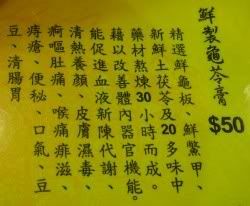 鮮製龜苓膏
$50
精選鮮龜板、鮮鱉甲、
新鮮土茯苓及20多味中
藥材熬煉30小時而成。
藉以改善體內器官機能。
能促進血液新陳代謝、
清熱養顏、皮膚濕毒、
痾嘔肚痛、喉痛痱滋、
痔瘡、便秘、口氣、豆
豆、清腸胃